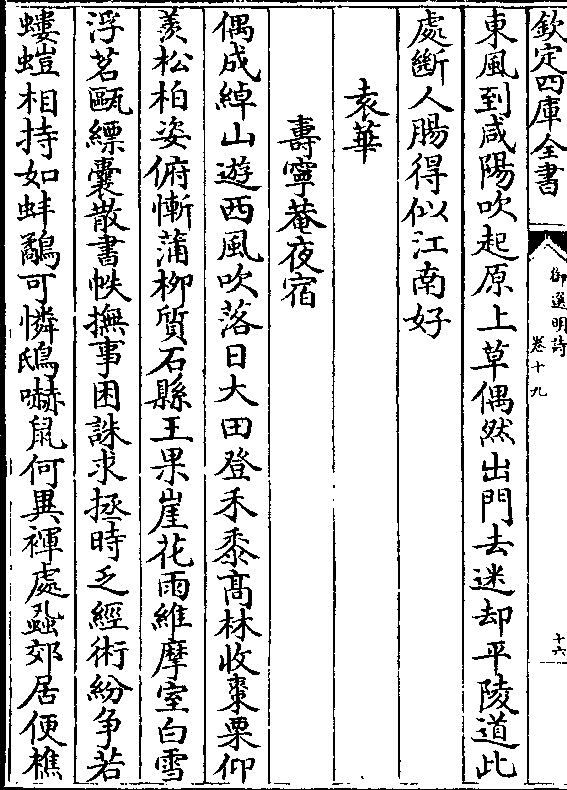 欽定四庫全書
御選明詩
卷十九
十六
東風到咸陽吹起原上草偶然出門去迷却平陵道此
處斷人腸得似江南好
袁華
壽寧菴夜宿
偶成綽山遊西風吹落日大田登禾黍髙林收棗栗仰
羡松柏姿俯慚蒲柳質石縣王果崖花雨維摩室白雪
浮茗甌縹囊散書帙撫事困誅求拯時乏經術紛争若
螻螘相持如蚌鷸可憐鴟嚇鼠何異褌處蝨郊居便樵